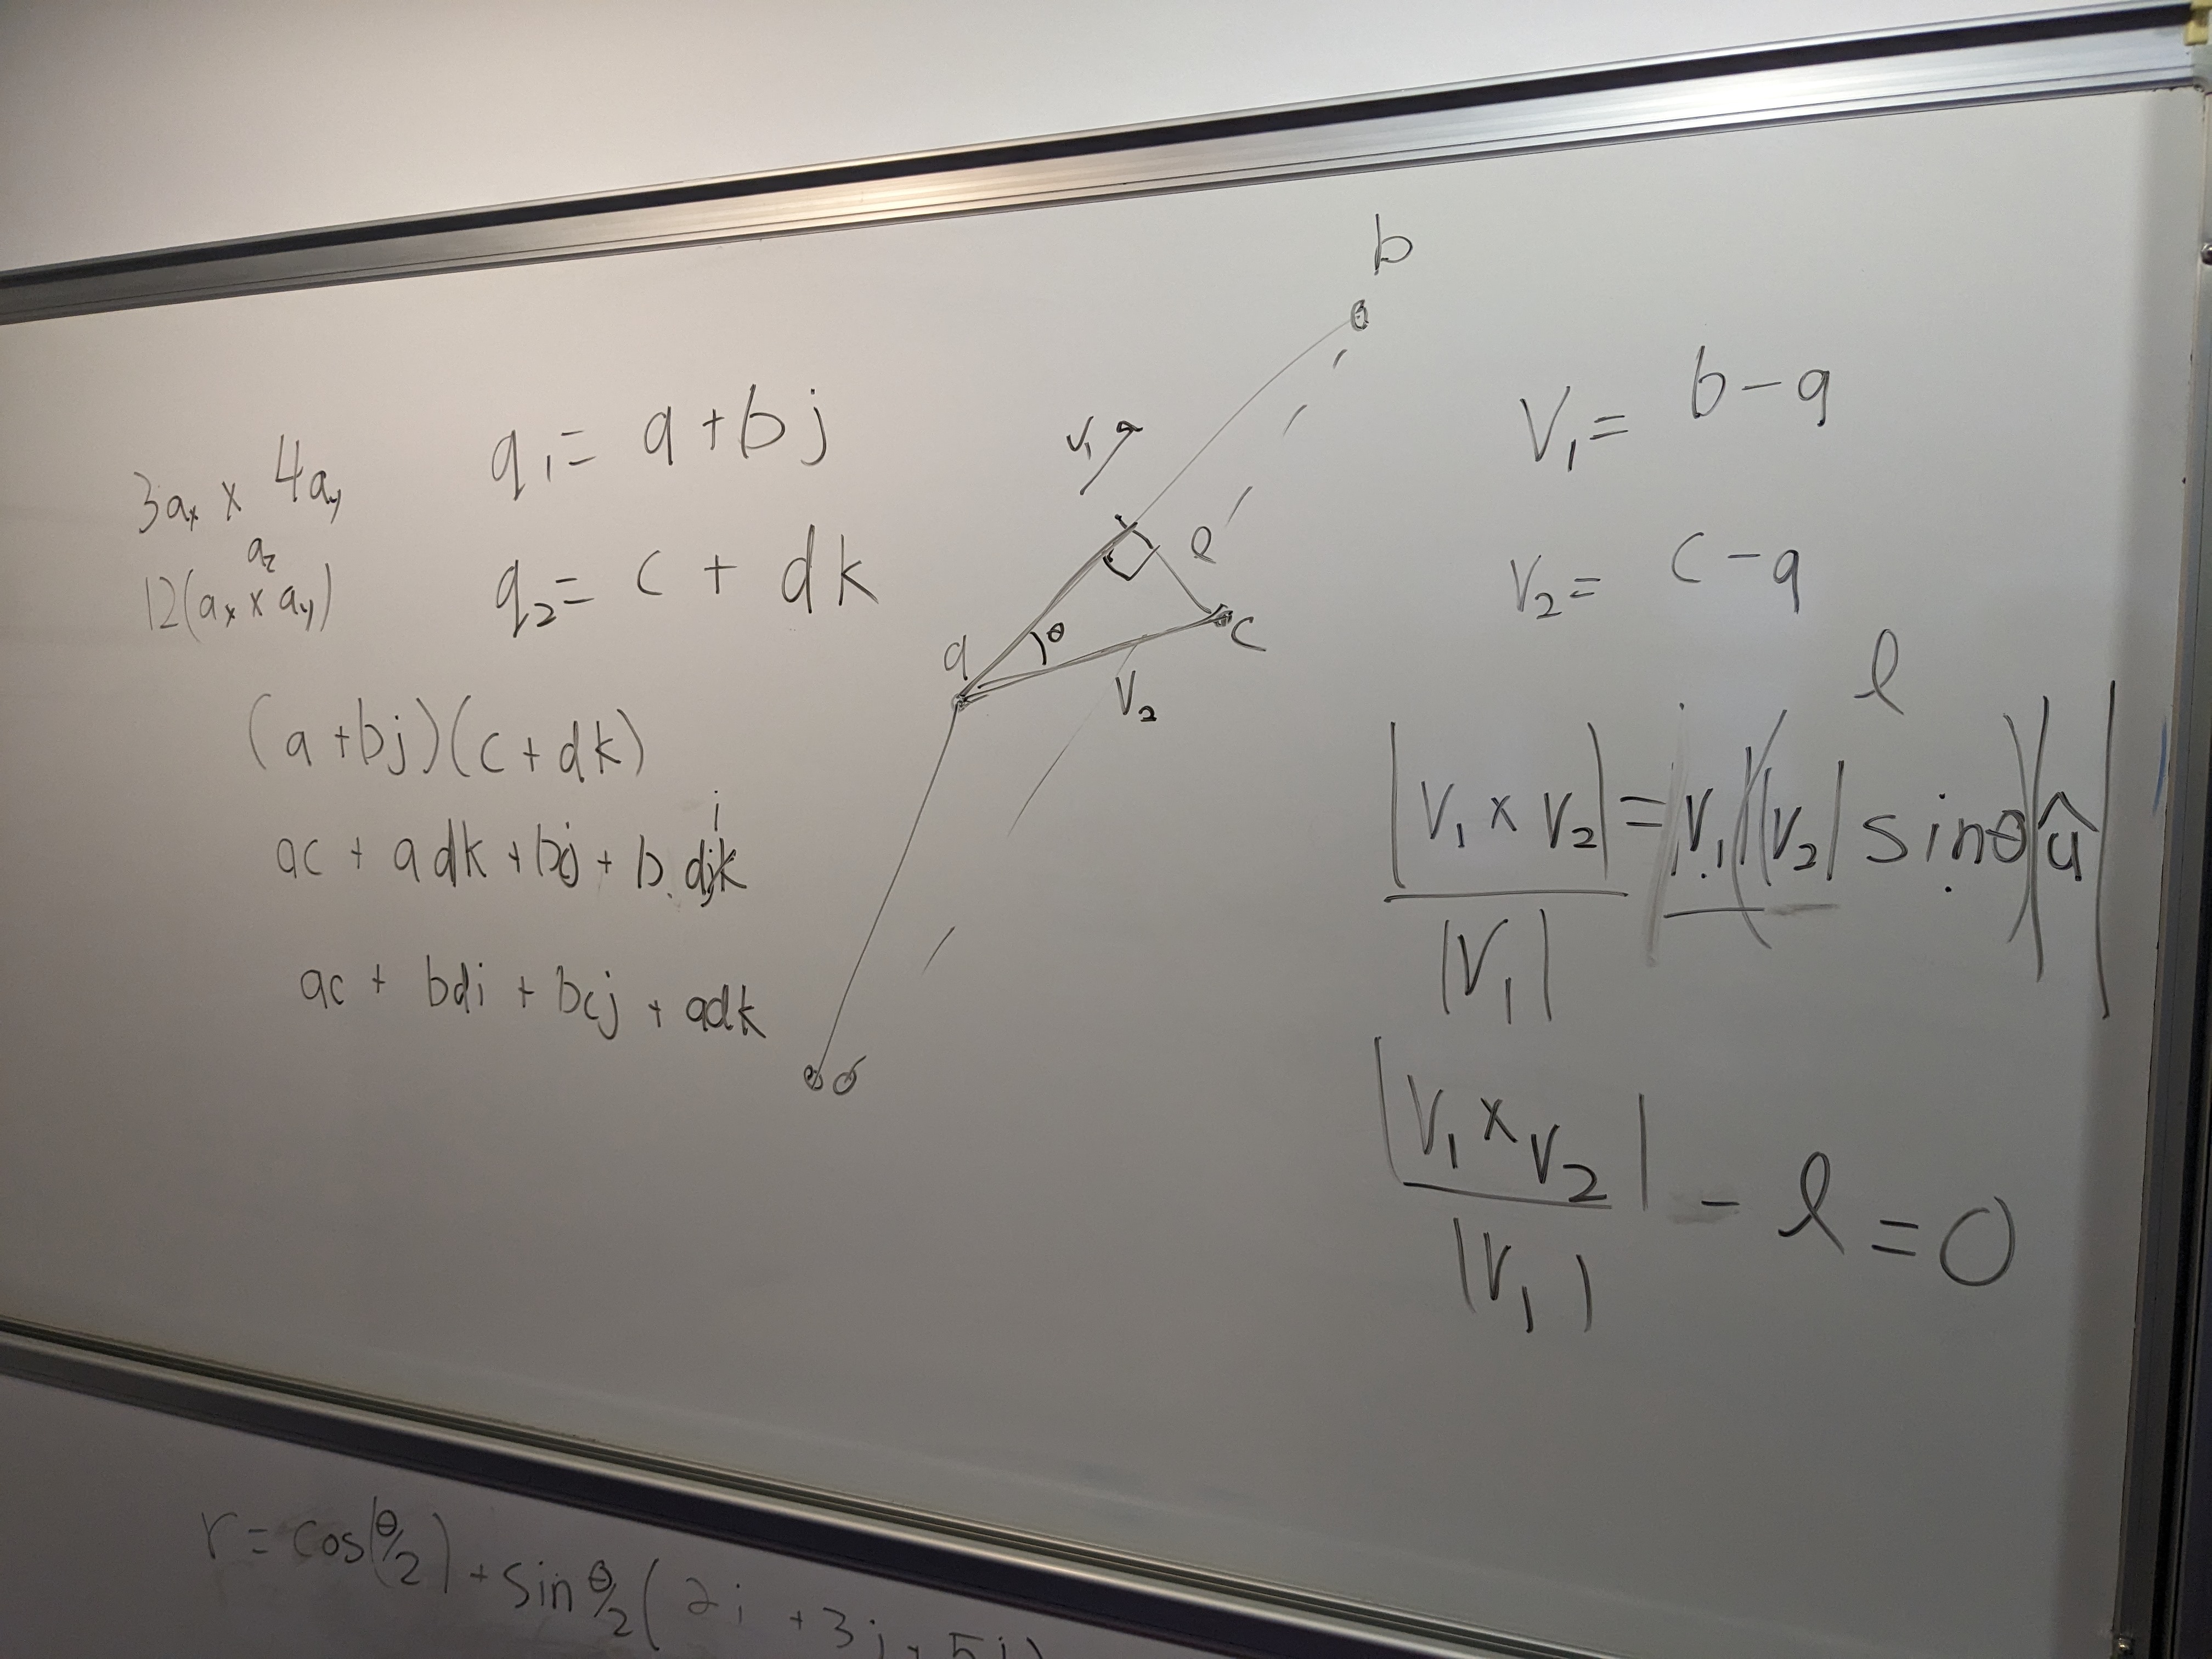 3aₓ × 4a_y
a_z
12(aₓ × a_y)
q₁ = a + bj
q₂ = c + dk
(a + bj)(c + dk)
i
ac + adk + bj + b.djk
ac + bdi + bcj + adk
b
V₁
e
θ
c
a
V₂
o
V₁ = b - a
V₂ = c - a
ℓ
|V₁ × V₂| / |V₁| = |V₁|(|V₂| sinθ)|û|
|V₁ × V₂| / |V₁| - ℓ = 0
r = cos(θ/2) + sin θ/2 (2i + 3j + 5j)